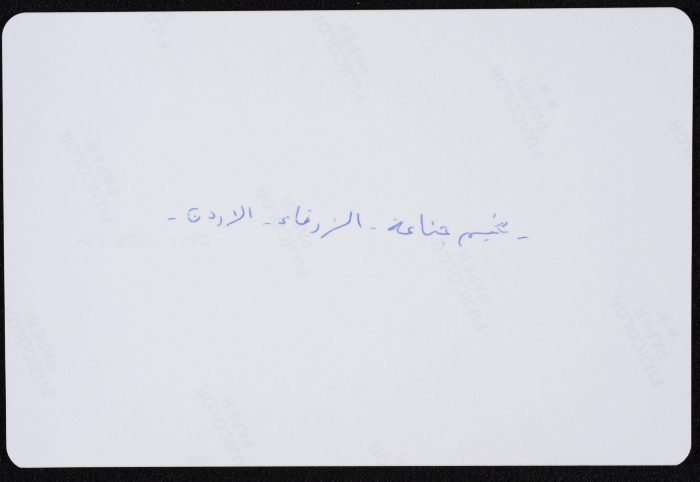 - مخيم جناعة - الزرقاء - الاردن -
FUJICOLOR PAPER
FUJICOLOR PAPER
FUJICOLOR PAPER
FUJICOLOR PAPER
FUJICOLOR PAPER
FUJICOLOR PAPER
FUJICOLOR PAPER
FUJICOLOR PAPER